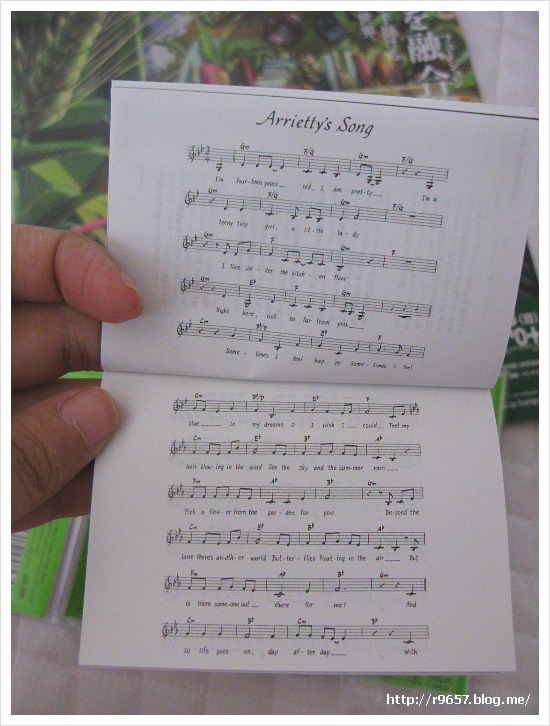 を融合
Arrietty's Song
Gm F/G Gm F/G
I'm four-teen years old, I am pret-ty I'm a
Gm F/G Gm F/G
teeny tiny girl, a lit-tle la-dy
Gm F Gm F
I live un-der the kitch-en floor
Gm B♭ F Gm
Right here, not so far from you
Cm E♭ F
Some-times I feel hap-py some-times I feel
Cm E♭ F
blue In my dreams O I wish I could... Feel my
Cm E♭ B♭ A♭
hair blow-ing in the wind See the sky and the sum-mer rain
Fm A♭ B♭ Gm
Pick a flow-er from the gar-den for you Be-yond the
Cm E♭ B♭ A♭
lane there's an-oth-er world But-ter-flies float-ing in the air But
Fm A♭ B♭ Gm
is there some-one out there for me? And
Cm B♭ Cm B♭
so life goes on, day af-ter day With
http://r9657.blog.me/